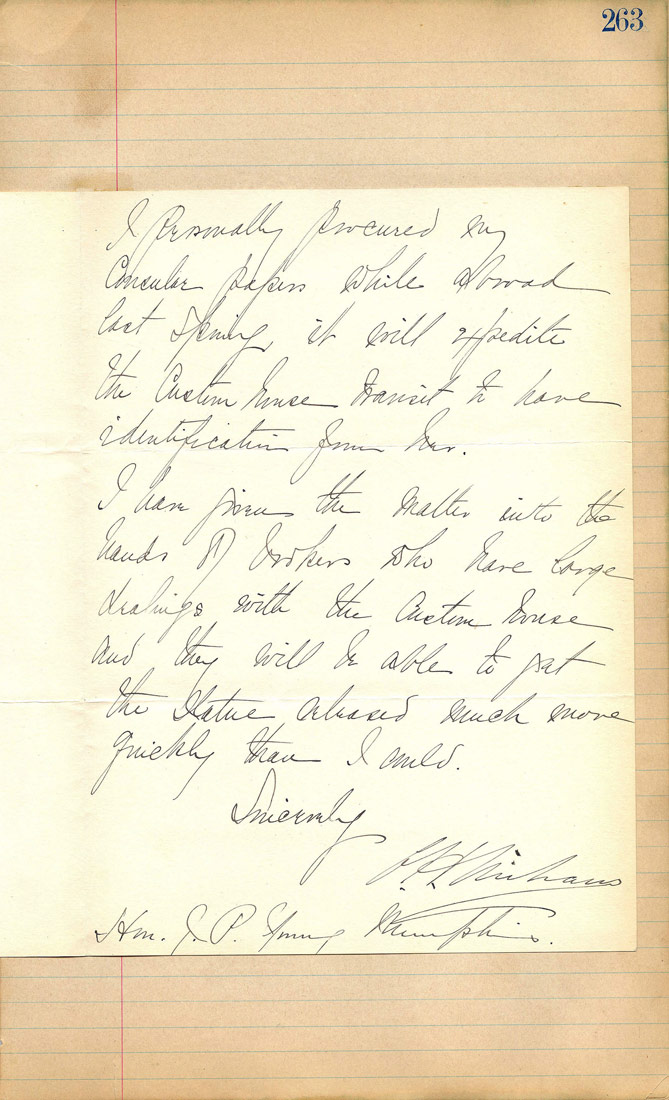 263
I personally procured my
Consular papers while abroad
last Spring, it will expedite
the Custom house transit to have
identification from her.
I have given the matter into the
hands of brokers who have large
dealings with the Custom house
and they will be able to get
the Statue released much more
quickly than I could.
Sincerely
C. H. Niehaus
Hon. J. P. Young Memphis.